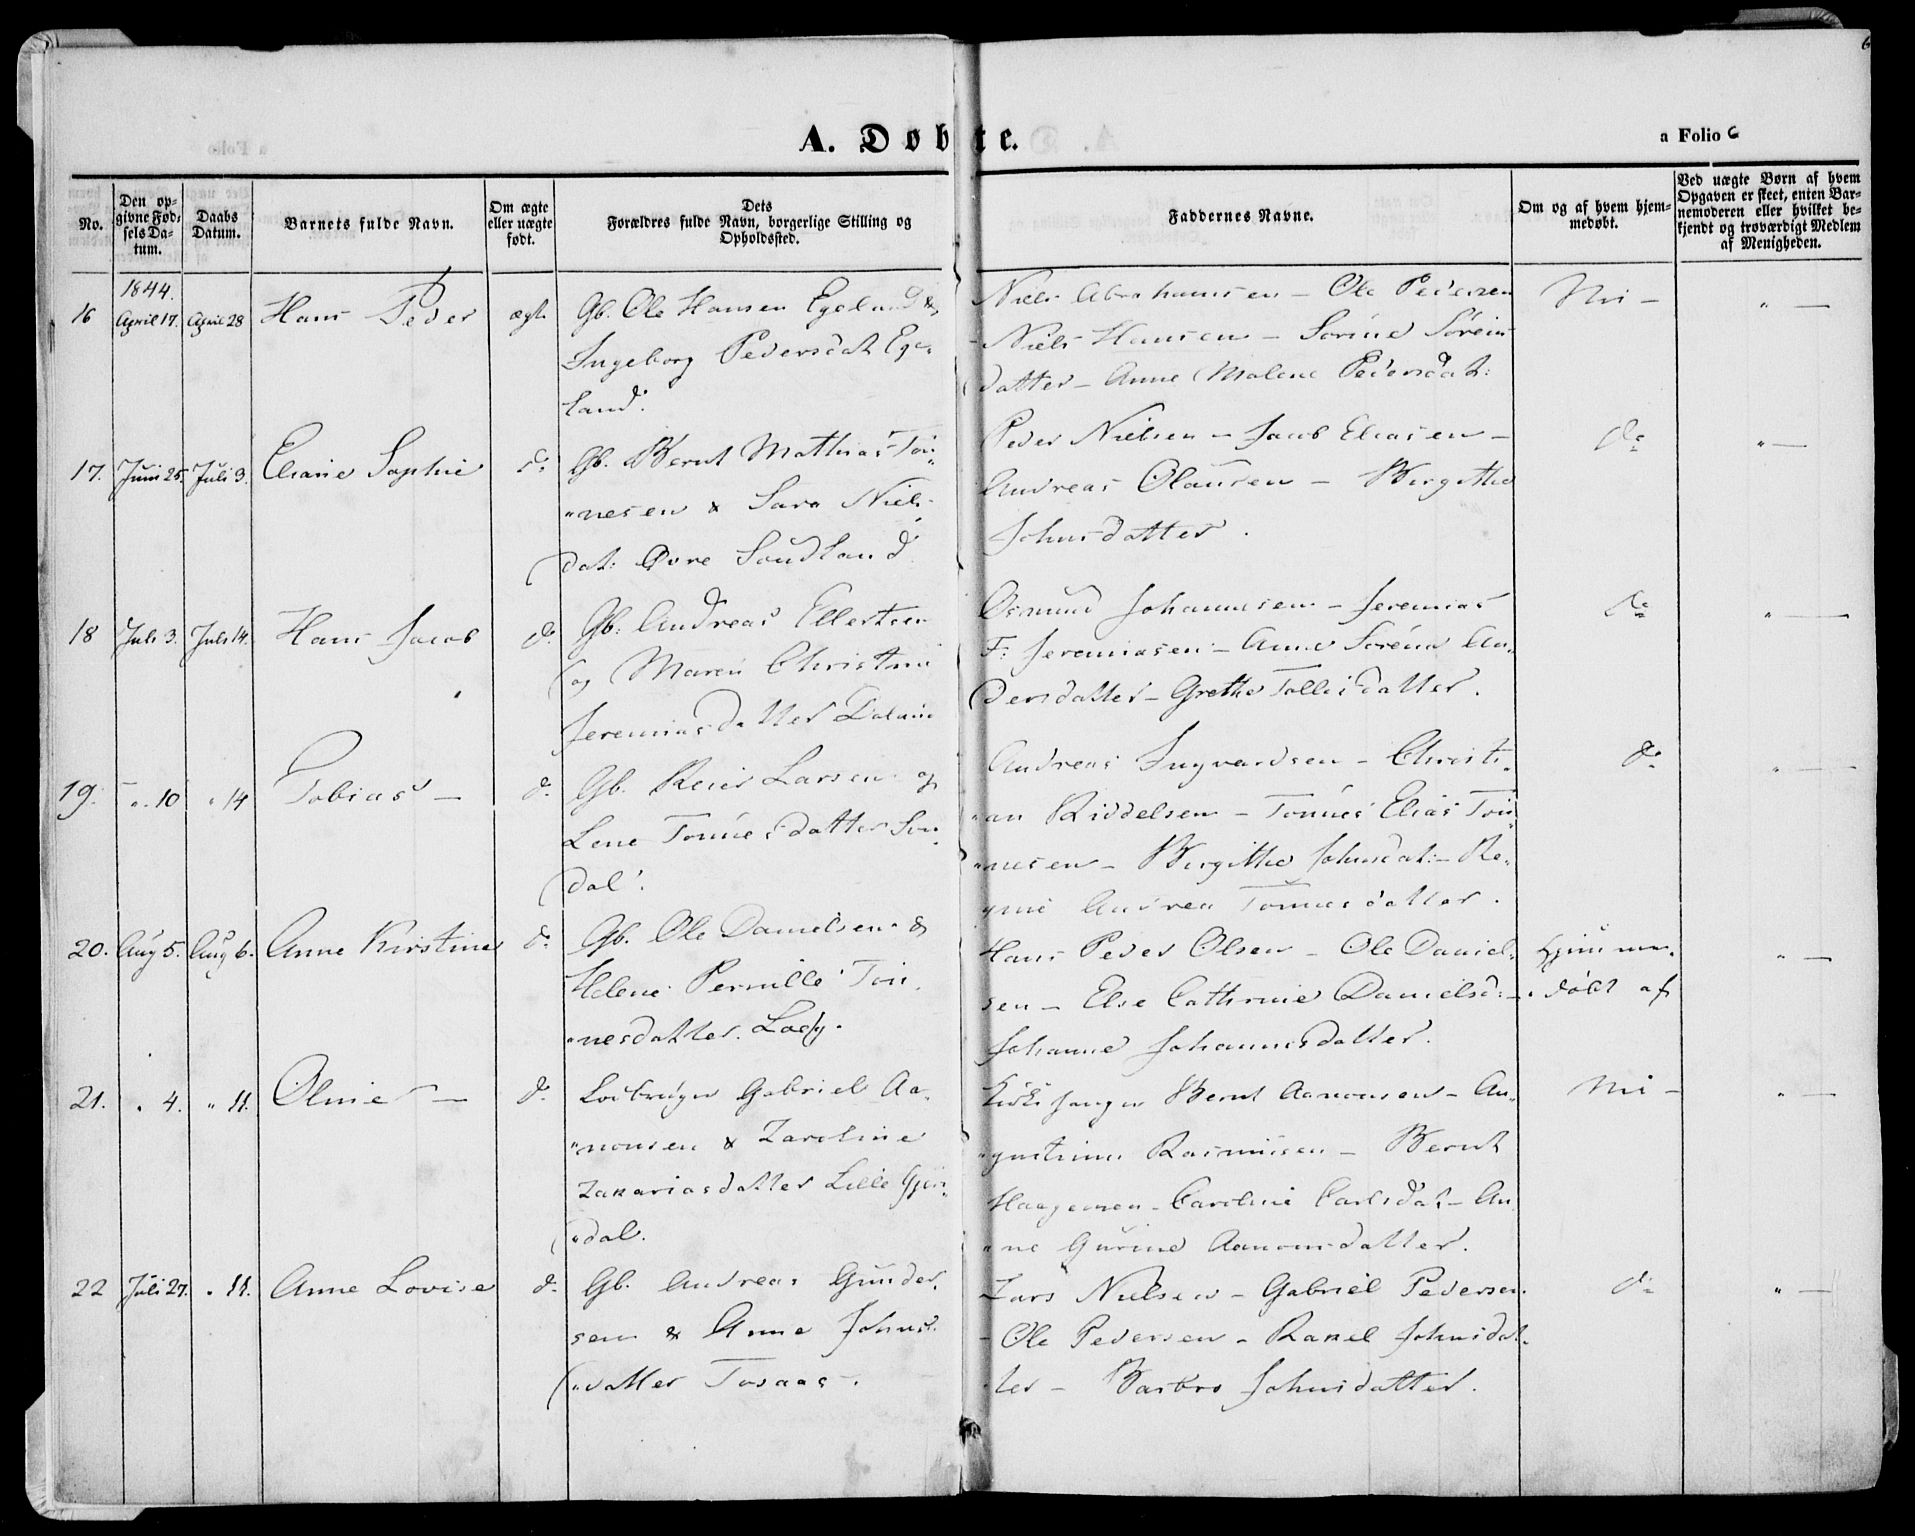 6
A. Døbte.
a Folio 6
No.
Den opgivne Fødselsdatum.
Daabs Datum.
Barnets fulde Navn.
Om ægte eller uægte født.
Dets Forældres fulde Navn, borgerlige Stilling og Opholdssted.
Faddernes Navne.
Om og af hvem hjemmedøbt.
Ved uægte Børn af hvem Opgaven er skeet, enten Barnemoderen eller hvilket bekjendt og troværdigt Medlem af Menigheden.
1844.
16 April 17. April 28 Hans Peder ægt.
Gb. Ole Hansen Egeland &
Ingeborg Pedersdat Ege-
land.
Niels Abrahamsen - Ole Pedersen
- Niels Hansen - Sorine Sörens-
datter - Anne Malene Pedersdat:
Nei - " -
17. Juni 25. Juli 3. Eliane Sophie do
Gb. Bernt Mathias Tön-
"nesen & Sara Niels-
dat: Øvre Soudland
Peder Nielsen - Jacob Eliasen -
Andreas Olausen - Birgithe
Johnsdatter.
do " -
18 Juli 3. Juli 14. Hans Jacob do
Gb. Andreas Ellertsen
og Maren Christine
Jeremiasdatter
Osmund Johannesen - Jeremias
F: Jeremiasen - Anne Sörene An-
dersdatter - Grethe Tollisdatter.
do " -
19. " 10 " 14 Tobias - do
Gb. Reier Larsen og
Lene Tönnesdatter
dal.
Andreas Ingvardsen - Christi-
"an Riddelsen - Tönnes Elias Tön-
"nesen - Birgithe Johnsdat: - Re-
gine Andrea Tönnesdatter.
do " -
20. Aug 5. Aug 6. Anne Kirstine do
Gb. Ole Danielsen &
Helene Pernille Tön-
"nesdatter.
Hans Peder Olsen - Ole Daniel-
sen - Else Cathrine Danielsd: -
Johanne Johannesdatter.
Hjemme-
døbt af
" -
21. " 4. " 11. Oline - do
Gabriel Aa-
"nonsen & Zaroline
Zakariasdatter Lille
"dal.
Kirkesanger Bernt Aanonsen - Au-
"gustinus Rasmusen - Bernt
Haagensen - Caroline Carlsdat - An
"ne Gurine Aanonsdatter.
Nei - " -
22 Juli 27. " 11. Anne Lovise do
Gb. Andreas Gunder-
sen & Anne Johns-
"datter Tosaas.
Lars Nielsen - Gabriel Pedersen.
- Ole Pedersen - Rakel Johnsdat-
ter - Barbro Johnsdatter.
do " -